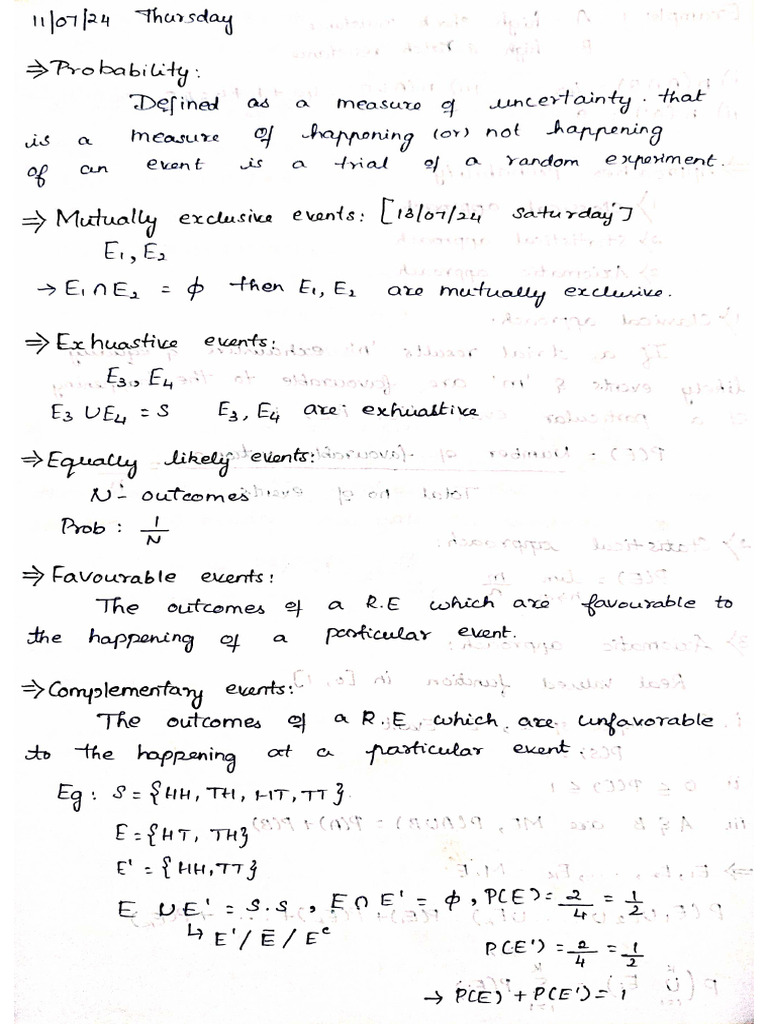 11/07/24 Thursday
⇒ Probability:
Defined as a measure of uncertainty. that
is a measure of happening (or) not happening
of an event is a trial of a random experiment.
⇒ Mutually exclusive events: [13/07/24 Saturday]
E₁, E₂
→ E₁ ∩ E₂ = ϕ then E₁, E₂ are mutually exclusive.
⇒ Exhuastive events:
E₃, E₄
E₃ ∪ E₄ = S E₃, E₄ are exhuastive
⇒ Equally likely events:
N - outcomes
Prob : 1/N
⇒ Favourable events:
The outcomes of a R.E which are favourable to
the happening of a particular event.
⇒ Complementary events:
The outcomes of a R.E which are unfavorable
to the happening at a particular event.
Eg: S = {HH, TH, HT, TT}.
E = {HT, TH}
E' = {HH, TT}
E ∪ E' = S.S, E ∩ E' = ϕ, P(E) = 2/4 = 1/2
↳ E' / Ē / Eᶜ
P(E') = 2/4 = 1/2
→ P(E) + P(E') = 1